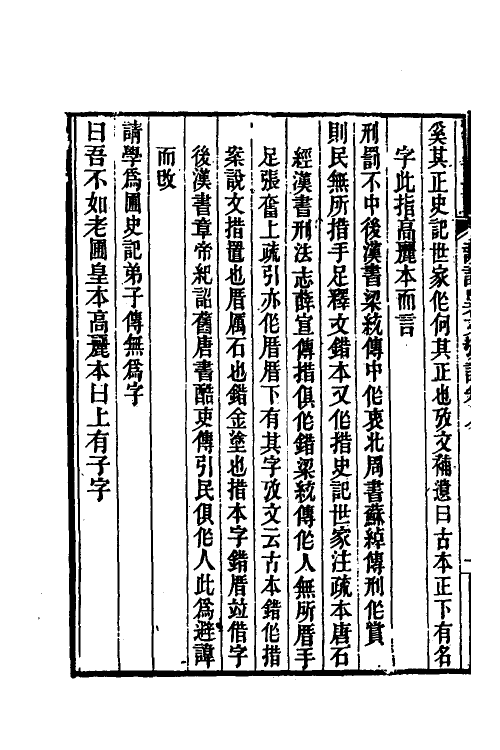 奚其正史記世家作何其正也攷文補遺曰古本正下有名
字此指高麗本而言
刑罰不中後漢書梁統傳中作衷北周書蘇綽傳刑作賞
則民無所措手足釋文錯本又作措史記世家注疏本唐石
經漢書刑法志薛宣傳措俱作錯梁統傳作人無所厝手
足張奮上疏引亦作厝厝下有其字攷文云古本錯作措
案說文措置也厝厲石也錯金塗也措本字錯厝竝借字
後漢書章帝紀詔舊唐書酷吏傳引民俱作人此為避諱
而改
請學為圃史記弟子傳無為字
曰吾不如老圃皇本高麗本曰上有子字